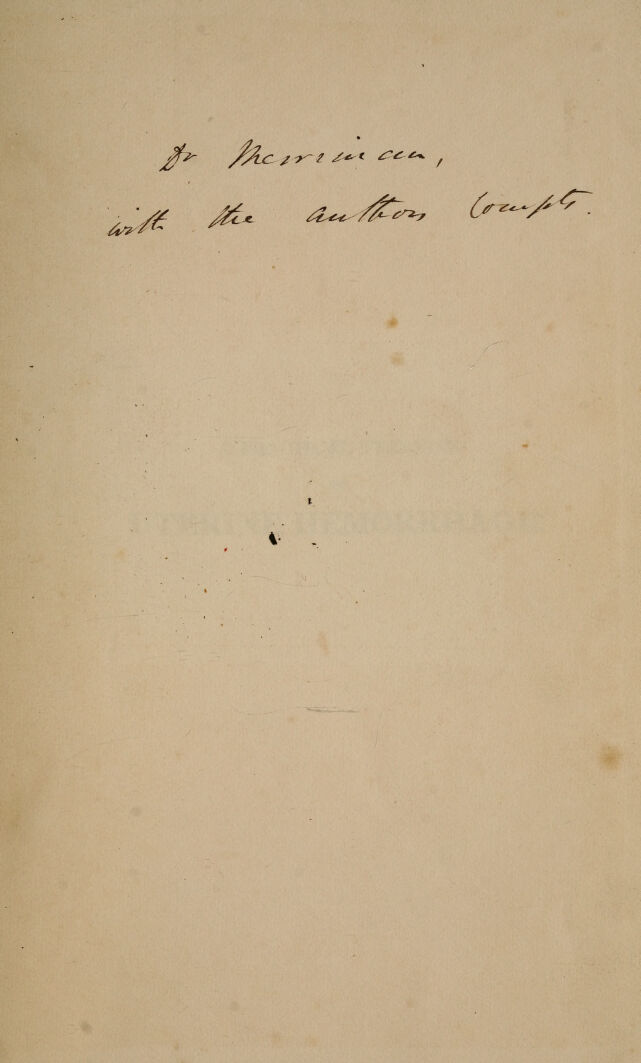 Dr Merriman,
with the authors Compts.